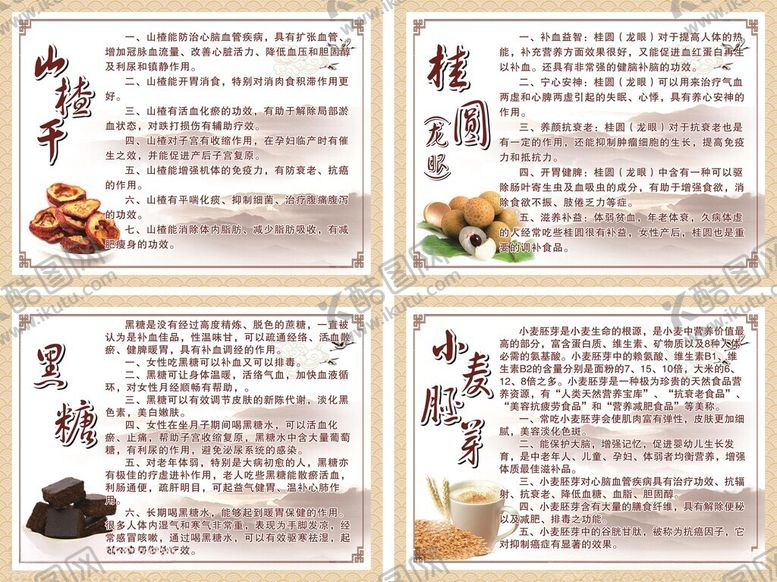 山楂干
一、山楂能防治心脑血管疾病，具有扩张血管、
增加冠脉血流量、改善心脏活力、降低血压和胆固醇
及利尿和镇静作用。
二、山楂能开胃消食，特别对消肉食积滞作用更
好。
三、山楂有活血化瘀的功效，有助于解除局部淤
血状态，对跌打损伤有辅助疗效。
四、山楂对子宫有收缩作用，在孕妇临产时有催
生之效，并能促进产后子宫复原。
五、山楂能增强机体的免疫力，有防衰老、抗癌
的作用。
六、山楂有平喘化痰、抑制细菌、治疗腹痛腹泻
的功效。
七、山楂能消除体内脂肪、减少脂肪吸收，有减
肥瘦身的功效。
桂圆
（龙眼）
一、补血益智：桂圆（龙眼）对于提高人体的热
能，补充营养方面效果很好，又能促进血红蛋白再生
以补血。还具有非常强的健脑补脑的功效。
二、宁心安神：桂圆（龙眼）可以用来治疗气血
两虚和心脾两虚引起的失眠、心悸，具有养心安神的
作用。
三、养颜抗衰老：桂圆（龙眼）对于抗衰老也是
有一定的作用，还能抑制肿瘤细胞的生长，提高免疫力
和抵抗力。
四、开胃健脾：桂圆（龙眼）中含有一种可以
驱除肠叶寄生虫及血吸虫的成分，有助于增强食欲，消
除食欲不振、肢倦乏力等症。
五、滋养补益：体弱贫血，年老体衰，久病体虚
的人经常吃些桂圆很有补益，女性产后，桂圆也是重
要的调补食品。
黑糖
黑糖是没有经过高度精炼、脱色的蔗糖，一直被
认为是补血佳品，性温味甘，可以疏通经络、活血散
瘀、健脾暖胃，具有补血调经的作用。
一、女性吃黑糖可以补血又可以排毒。
二、黑糖可让身体温暖，活络气血，加快血液循
环，对女性月经顺畅有帮助，。
三、黑糖可以有效调节皮肤的新陈代谢，淡化黑
色素，美白嫩肤。
四、女性在坐月子期间喝黑糖水，可以活血化
瘀、止痛，帮助子宫收缩复原，黑糖水中含大量葡萄
糖，有利尿的作用，避免泌尿系统的感染。
五、对老年体弱，特别是大病初愈的人，黑糖亦
有极佳的疗虚进补作用，老人吃些黑糖能散瘀活血，
利肠通便，疏肝明目，可起益气健胃、温补心肺作
用。
六、长期喝黑糖水，能够起到暖胃保健的作用。
很多人体内湿气和寒气非常重，表现为手脚发凉，经
常感冒咳嗽，通过喝黑糖水，可以有效驱寒祛湿，起
小麦胚芽
小麦胚芽是小麦生命的根源，是小麦中营养价值最
高的部分，富含蛋白质、维生素、矿物质以及8种人体
必需的氨基酸。小麦胚芽中的赖氨酸、维生素B1、维
生素B2的含量分别是面粉的7、15、10倍，大米的6、
12、8倍之多。小麦胚芽是一种极为珍贵的天然食品营
养资源，有“人类天然营养宝库”、“抗衰老食品”、
“美容抗疲劳食品”和“营养减肥食品”等美称。
一、常吃小麦胚芽会使肌肉富有弹性、皮肤更加细
腻，美容淡化色斑。
二、能保护大脑，增强记忆，促进婴幼儿生长发
育，是中老年人、儿童、孕妇、体弱者均衡营养，增强
体质最佳滋补品。
三、小麦胚芽对心脑血管疾病具有治疗功效、抗辐
射、抗衰老、降低血糖、血脂、胆固醇。
四、小麦胚芽含有大量的膳食纤维，具有解除便秘
以及减肥、排毒之功能。
五、小麦胚芽中的谷胱甘肽，被称为抗癌因子，它
对抑制癌症有显著的效果。
酷图网
www.ikutu.com